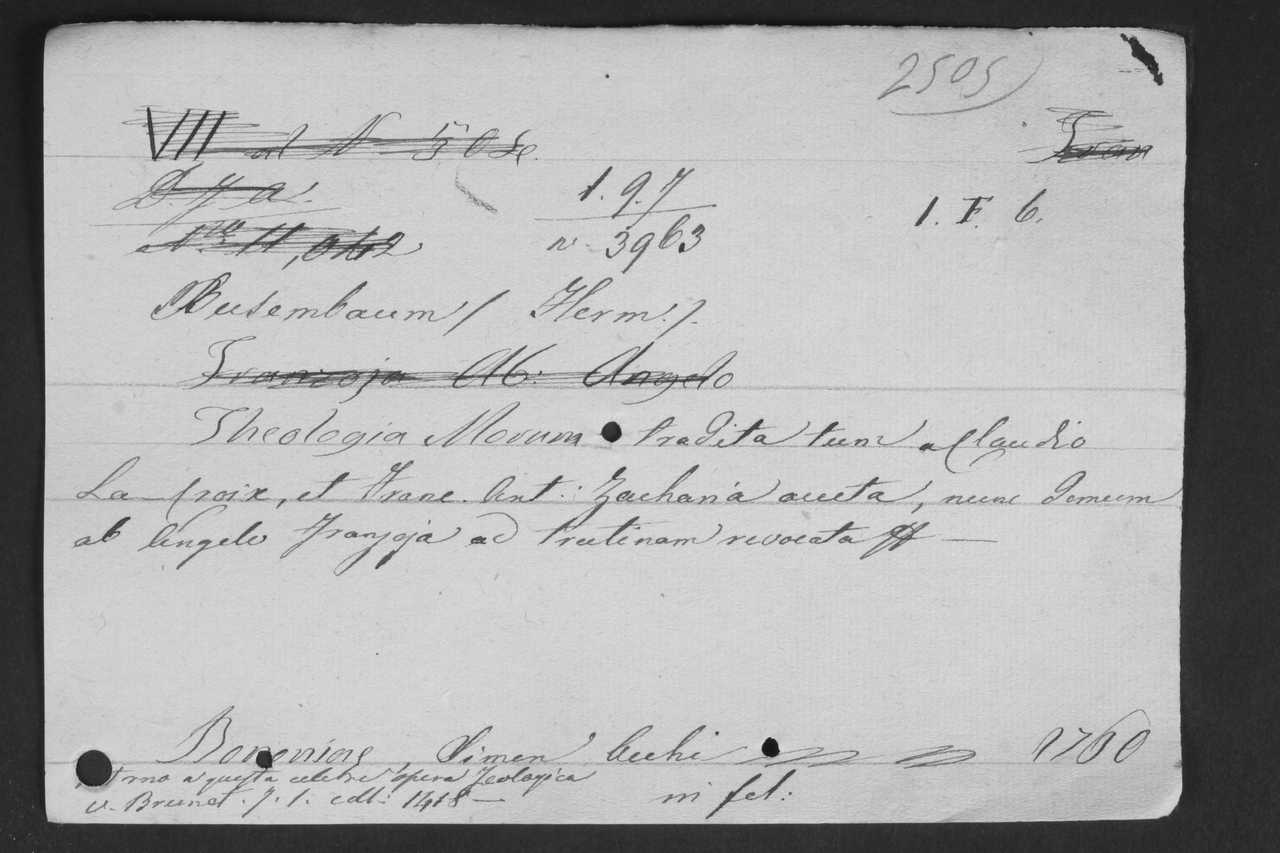 2505
VII al N 50
Fran
1.9.7
1. F. 6.
n. 3963
Busembaum / Herm: /.
Franzoja Ab: Angelo
Theologia Morum tradita tum a Claudio
La-Croix, et Franc. Ant: Zacharia aucta, nunc demum
ab Angelo Franzoja ad trutinam revocata
Bononiae, Simon Occhi 1760
in fol:
intorno a questa celebre opera Teologica
v. Brunet. T. 1. coll: 1418 —